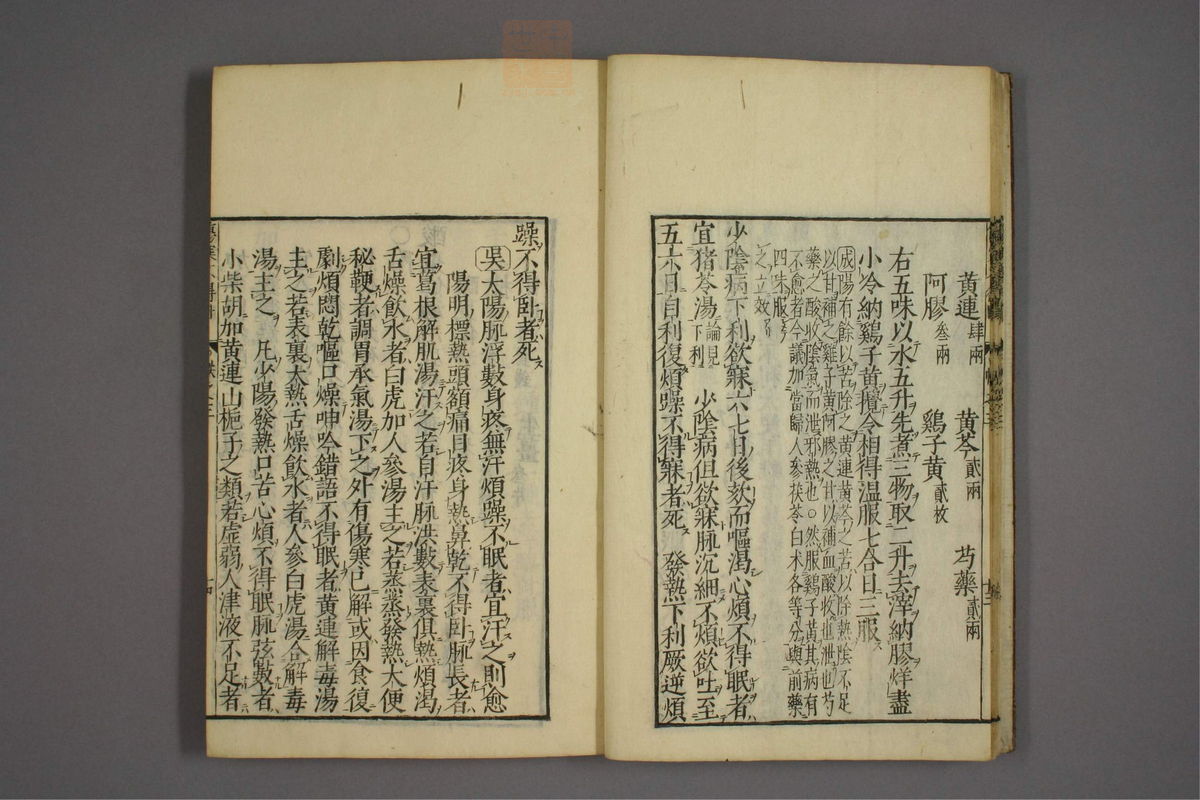 黃連肆兩　黃芩貳兩　芍藥貳兩
阿膠叁兩　鷄子黃貳枚
右五味以水五升先煮三物取二升去滓納膠烊盡
小冷納鷄子黃攪令相得温服七合日三服
成陽有餘以苦除之黃連黃芩之苦以除熱陰不足
以甘補之雞子黃阿膠之甘以補血酸收也泄也芍
藥之酸收陰氣而泄邪熱也○然服鷄子黃其病有
不愈者今議加當歸人參茯苓白术各等分與前藥
四味服
之立效
少陰病下利欲寐六七日後欬而嘔渴心煩不得眠者
宜猪苓湯論見下利　少陰病但欲寐脉沉細不煩欲吐至
五六日自利復煩躁不得寐者死　發熱下利厥逆煩
躁不得卧者死
吳太陽脉浮數身疼無汗煩躁不眠者宜汗之則愈
陽明標熱頭額痛目疼身熱鼻乾不得卧脉長者
宜葛根解肌湯汗之若自汗脉洪數表裏俱熱煩渴
舌燥飲水者白虎加人參湯主之若蒸蒸發熱大便
秘鞕者調胃承氣湯下之外有傷寒已解或因食復
劇煩悶乾嘔口燥呻吟錯語不得眠者黃連解毒湯
主之若表裏大熱舌燥飲水者人參白虎湯合解毒
湯主之　凡少陽發熱口苦心煩不得眠脉弦數者
小柴胡加黃連山梔子之類若虛弱人津液不足者